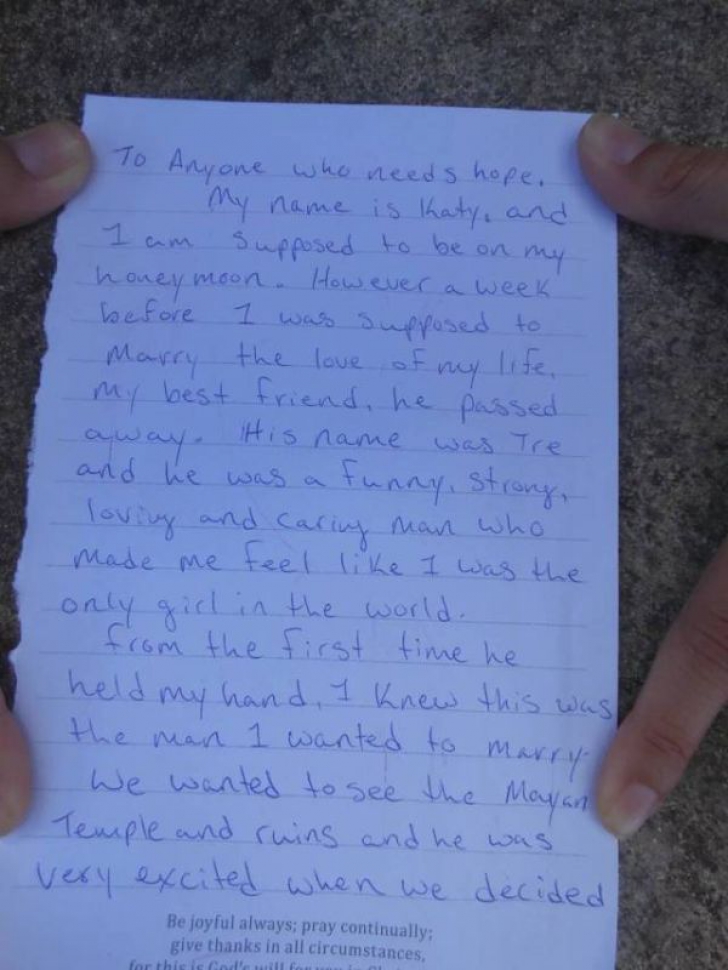 To Anyone who needs hope.
My name is Katy, and
I am supposed to be on my
honeymoon. However a week
before I was supposed to
Marry the love of my life,
my best friend, he passed
away. His name was Tre
and he was a funny, strong,
loving and caring man who
made me feel like I was the
only girl in the world.
From the first time he
held my hand, I knew this was
the man I wanted to marry.
We wanted to see the Mayan
Temple and ruins and he was
very excited when we decided
Be joyful always; pray continually;
give thanks in all circumstances,
for this is God's will for